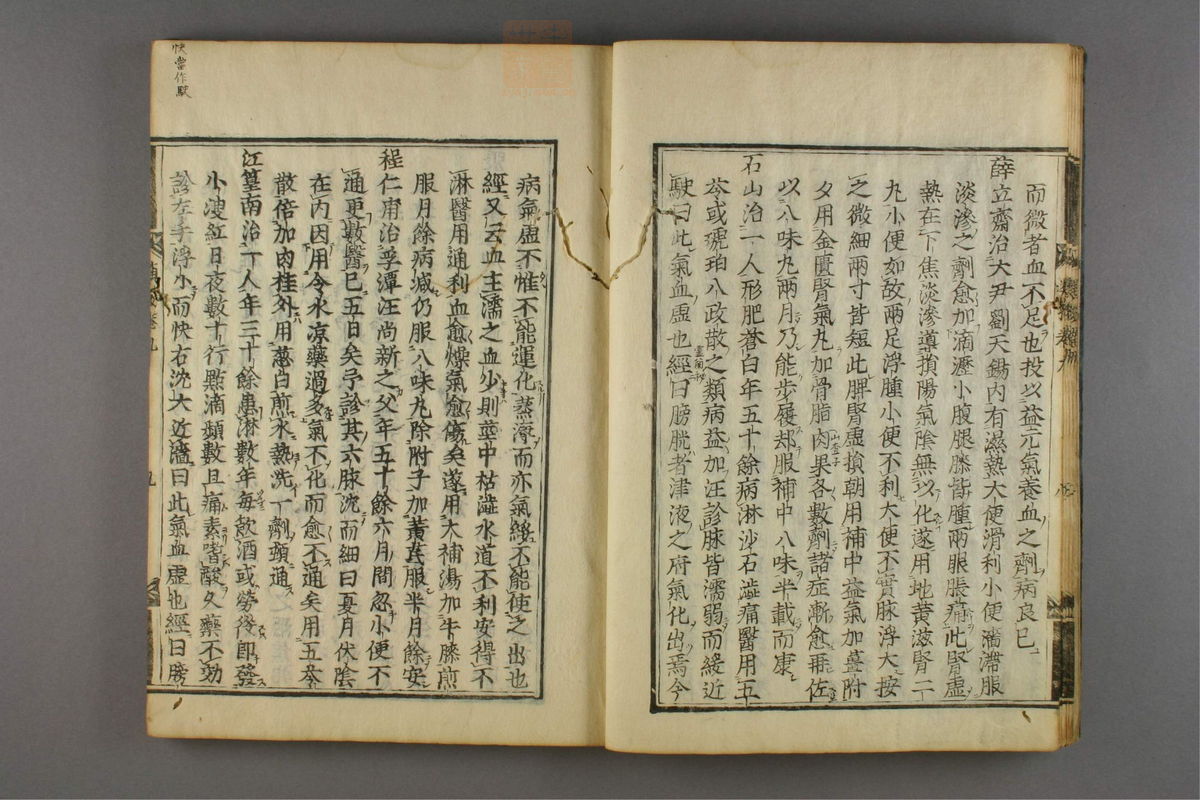 而微者血不足也投以益元氣養血之劑病良已
薛立齋治大尹劉天錫內有濕熱大便滑利小便濇滯服
淡滲之劑愈加滴瀝小腹腿膝皆腫兩眼脹痛此腎虛
熱在下焦淡滲導損陽氣陰無以化遂用地黃滋腎二
丸小便如故兩足浮腫小便不利大便不實脉浮大按
之微細兩寸皆短此脾腎虛損朝用補中益氣加薑附
夕用金匱腎氣丸加骨脂肉果各數劑諸症漸愈再佐
以八味丸兩月乃能步履却服補中八味半載而康
石山治一人形肥蒼白年五十餘病淋沙石澁痛醫用五
苓或琥珀八政散之類病益加汪診脉皆濡弱而緩近
駛曰此氣血虛也經曰膀胱者津液之府氣化出焉今
病氣虛不惟不能運化蒸溽而亦氣緩不能使之出也
經又云血主濡之血少則莖中枯澁水道不利安得不
淋醫用通利血愈燥氣愈傷矣遂用大補湯加牛膝煎
服月餘病減仍服八味丸除附子加黃芪服半月餘安
程仁甫治孚潭汪尚新之父年五十餘六月間忽小便不
通更數醫已五日矣予診其六脉沈而細曰夏月伏陰
在內因用令水涼藥過多氣不化而愈不通矣用五苓
散倍加肉桂外用葱白煎水熱洗一劑頓通
江篁南治一人年三十餘患淋數年每飲酒或勞後即發
小溲紅日夜數十行點滴頻數且痛素嗜酸久藥不効
診左手浮小而快右沈大近濇曰此氣血虛也經曰膀
快當作駛
山查子
卷九
九